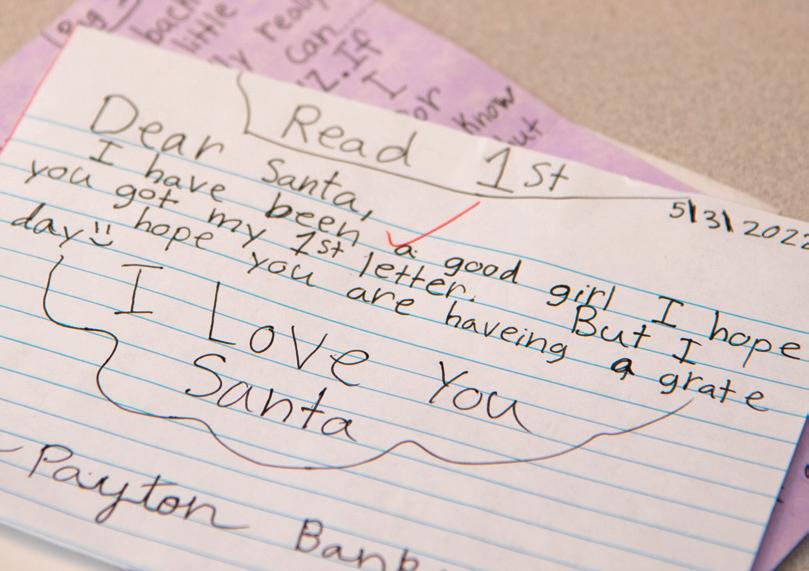 back
little
really
can
If
I
or
know
but
Read 1st
5/31/2022
Dear Santa,
I have been a good girl I hope
you got my 1st letter. But I
hope you are haveing a grate
day
I Love You
Santa
- Payton Bank